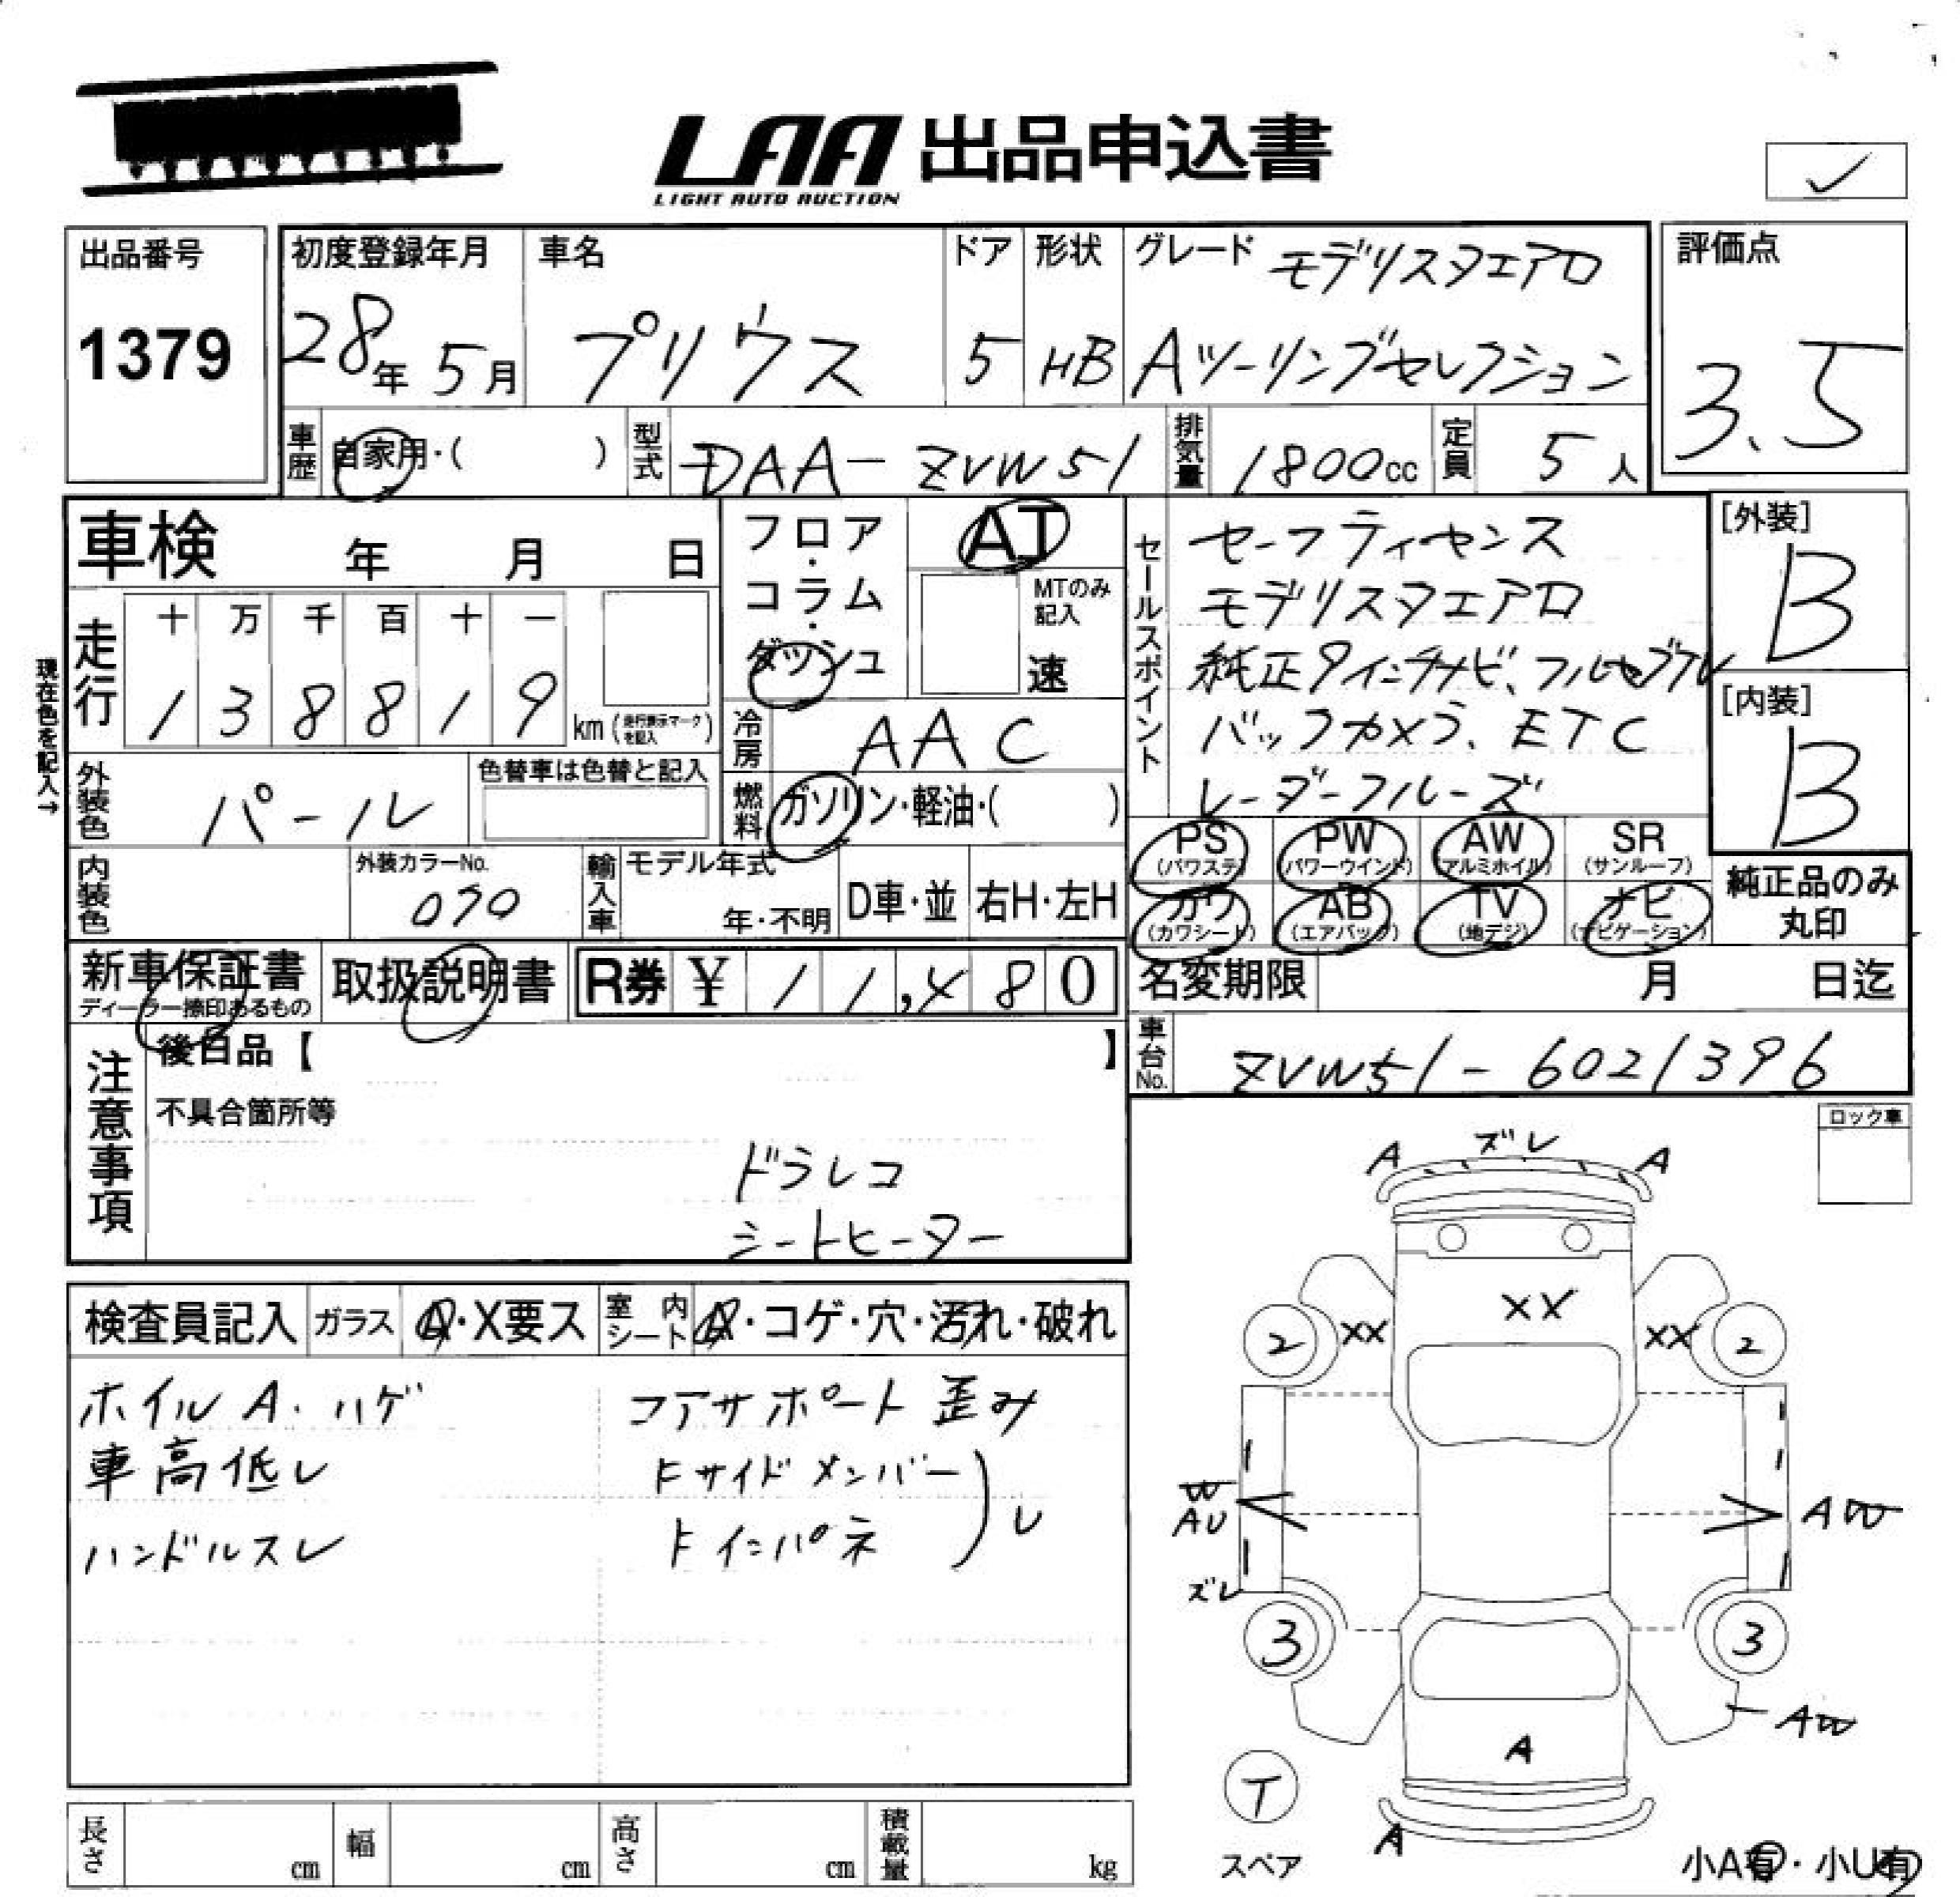 LAA 出品申込書
LIGHT AUTO AUCTION
✓
出品番号
1379
初度登録年月
28年 5月
車名
プリウス
ドア
5
形状
HB
グレード モデリスタエアロ
Aツーリングセレクション
評価点
3.5
車歴 自家用・( )
型式 DAA-ZVW51
排気量 1800cc
定員 5人
車検 年 月 日
走行
十 万 千 百 十 一
1 3 8 8 1 9
km(走行表示マークを記入)
現在色を記入→
フロア・コラム・ダッシュ
AT
MTのみ記入
速
冷房 AAC
燃料 ガソリン・軽油・( )
外装色 パール
色替車は色替と記入
内装色
外装カラーNo.
070
輸入車
モデル年式
年・不明
D車・並
右H・左H
セールスポイント
セーフティセンス
モデリスタエアロ
純正9インチナビ、フルセグTV
バックカメラ、ETC
レーダークルーズ
[外装]
B
[内装]
B
PS (パワステ)
PW (パワーウインド)
AW (アルミホイル)
SR (サンルーフ)
カワ (カワシート)
AB (エアバック)
TV (地デジ)
ナビ (ナビゲーション)
純正品のみ
丸印
新車保証書
ディーラー捺印あるもの
取扱説明書
R券 ¥ 11,480
名変期限 月 日迄
車台No. ZVW51-6021396
注意事項
後日品【 】
不具合箇所等
ドラレコ
シートヒーター
ロック車
検査員記入
ガラス A・X要ス
室内シート A・コゲ・穴・汚れ・破れ
ホイルA・ハゲ
車高低レ
ハンドルスレ
コアサポート歪み
Fサイドメンバー
Fインパネ
レ
A ズレ A
XX
2 XX
XX 2
W
AU
ズレ
AW
3
3
AW
A
A
T
スペア
小A有・小U有
長さ cm
幅 cm
高さ cm
積載量 kg